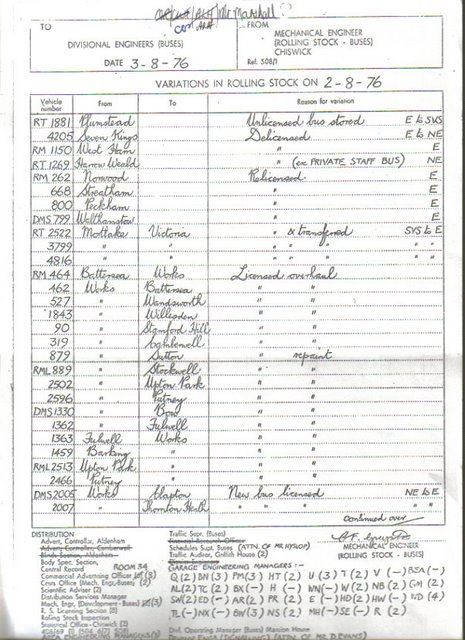 Mr Marshall
TO
FROM
DIVISIONAL ENGINEERS (BUSES)
MECHANICAL ENGINEER
(ROLLING STOCK - BUSES)
CHISWICK
DATE 3-8-76
Ref. 508/1
VARIATIONS IN ROLLING STOCK ON 2-8-76
Vehicle number From To Reason for variation
RT 1881 Plumstead Unlicensed bus stored E to SVS
4205 Seven Kings Delicensed E to NE
RM 1150 West Ham " E
RT 1269 Harrow Weald " (ex PRIVATE STAFF BUS) NE
RM 262 Norwood Relicensed E
668 Streatham " E
800 Peckham " E
DMS 799 Walthamstow " E
RT 2522 Mortlake Victoria " & transferred SVS to E
3799 " " " " " " "
4816 " " " " " " "
RM 464 Battersea Works Licensed overhaul
462 Works Battersea " "
527 " Wandsworth " "
1843 " Willesden " "
90 " Stamford Hill " "
319 " Camberwell " "
879 " Sutton " repaint
RML 889 " Stockwell " "
2502 " Upton Park " "
2596 " Putney " "
DMS 1330 " Bow " "
1362 " Fulwell " "
1363 Fulwell Works " "
1459 Barking " " "
RML 2513 Upton Park " " "
2466 Putney " " "
DMS 2005 Works Clapton New bus licensed NE to E
2007 " Thornton Heath " " "
continued over
DISTRIBUTION
Advert. Controller, Aldenham
Advert. Controller, Camberwell
Body Spec. Section,
Central Record ROOM 34
Commercial Advertising Officer (3)
Costs Office (Mach. Engr.-Buses) (2)
Scientific Adviser (2)
Distribution Services Manager
Mech. Engr. (Development - Buses) (3)
R. S. Licensing Section (2)
Rolling Stock Inspection
Statistical Office - Chiswick (2)
Traffic Supt. (Buses)
Schedules Supt. Buses (ATTN. OF MR HYSLOP)
Traffic Auditor, Griffith House (2)
MECHANICAL ENGINEER
(ROLLING STOCK - BUSES)
GARAGE ENGINEERING MANAGERS :-
Q (2) BN (3) PM (3) HT (2) U (3) T (2) V (-) BEA (-)
AL (2) TC (2) BX (-) H (-) WN (-) W (2) NB (2) GM (2)
SW (2) ED (-) AR (2) PR (2) E (-) HD (2) HW (-) WD (4)
TL (-) NX (-) BW (3) NS (2) MH (-) SE (-) R (2)
Divl. Operating Manager (Buses) Mansion House